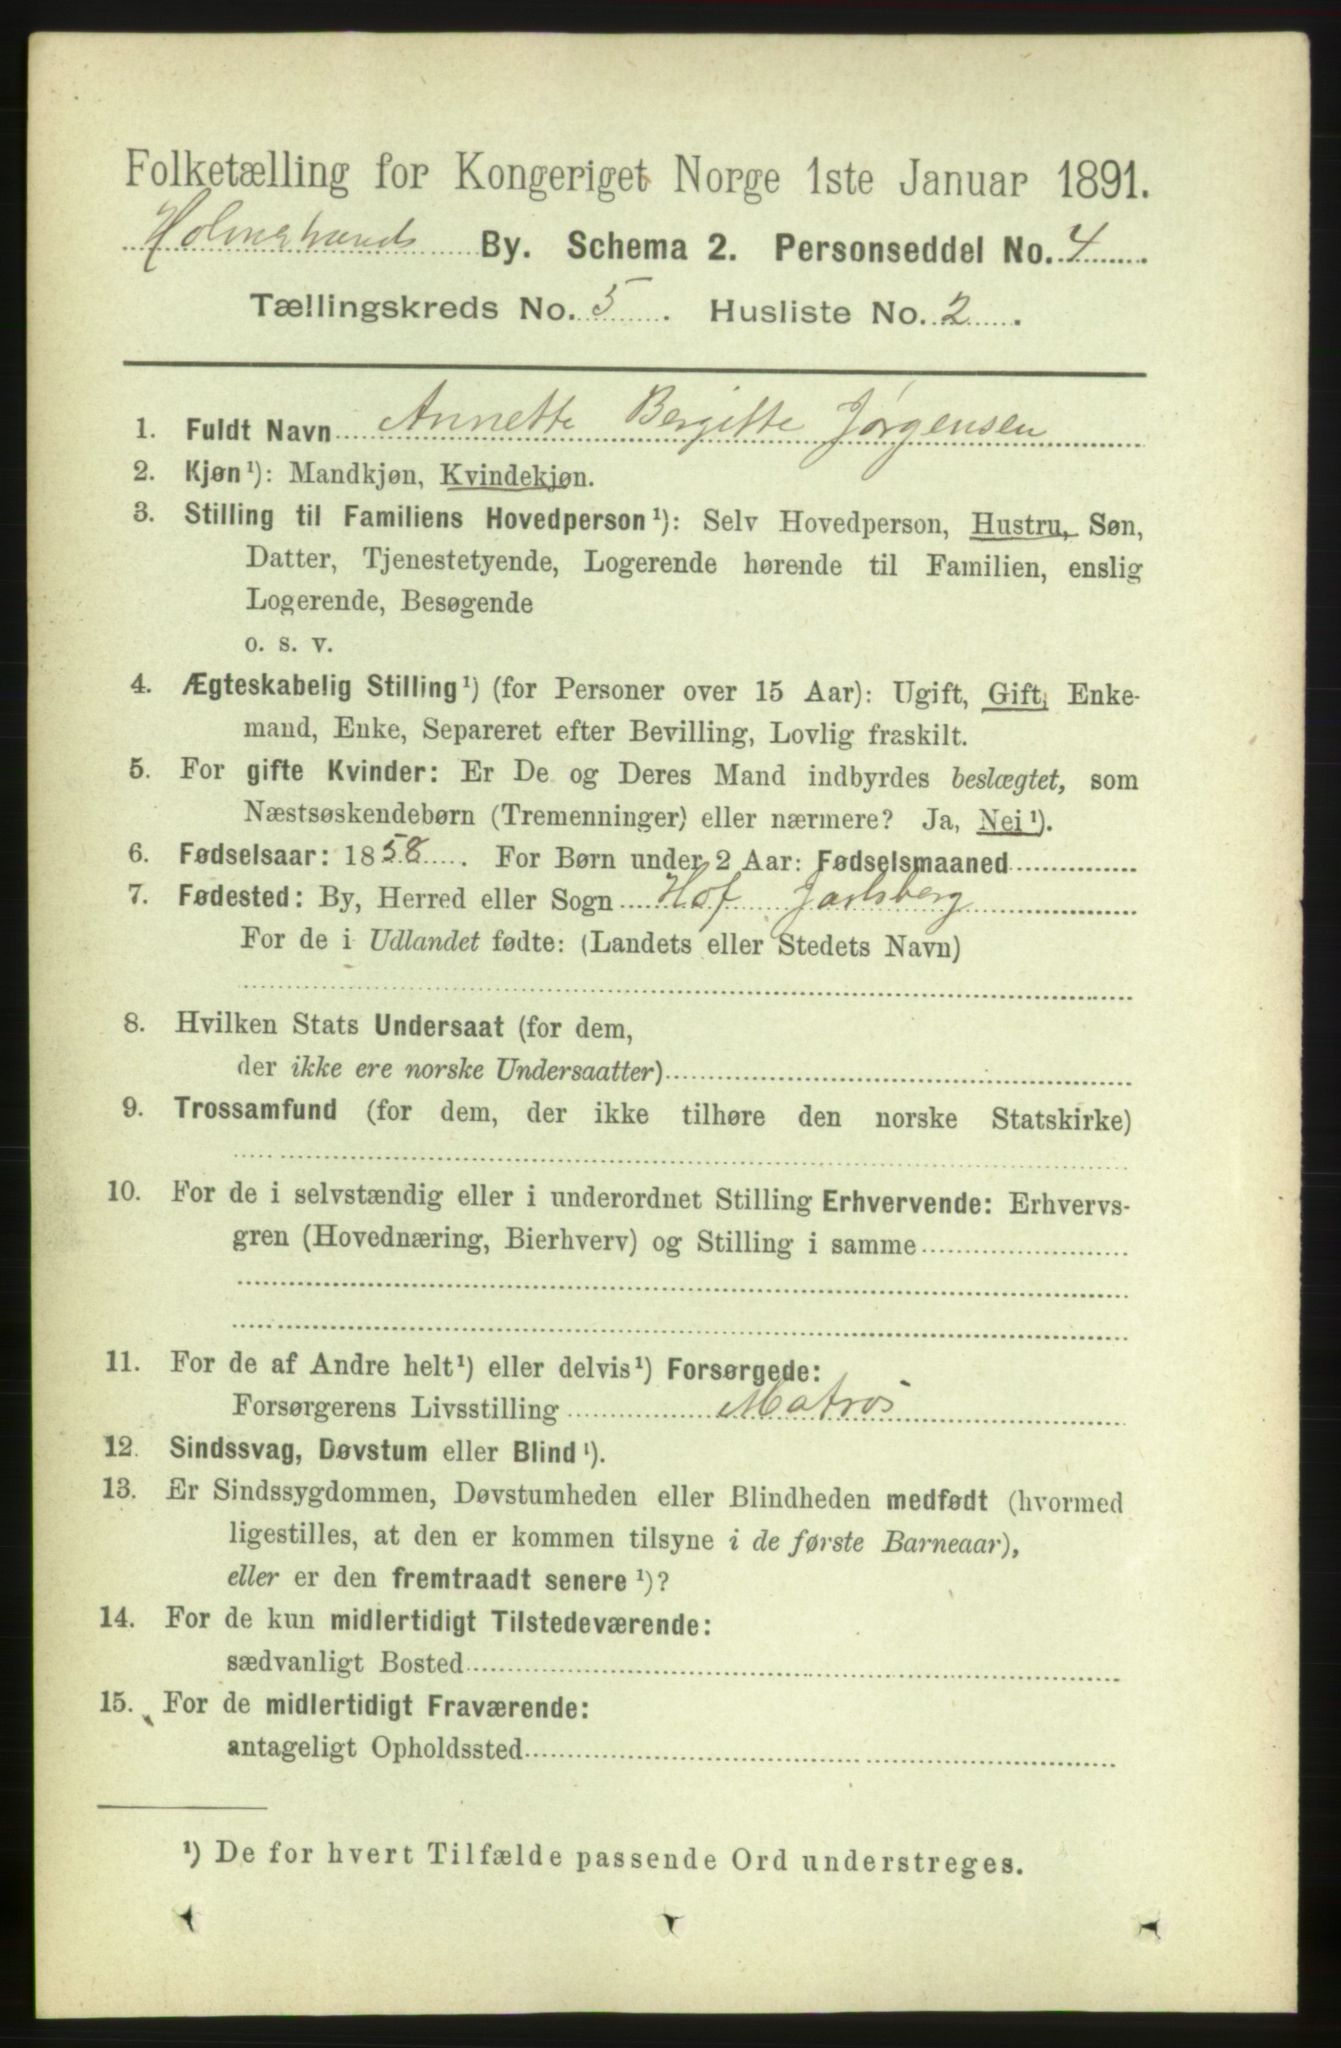 Folketælling for Kongeriget Norge 1ste Januar 1891.
Holmestrands By. Schema 2. Personseddel No. 4
Tællingskreds No. 5. Husliste No. 2.
1. Fuldt Navn Annette Bergitte Jørgensen
2. Kjøn¹): Mandkjøn, Kvindekjøn.
3. Stilling til Familiens Hovedperson¹): Selv Hovedperson, Hustru, Søn,
Datter, Tjenestetyende, Logerende hørende til Familien, enslig
Logerende, Besøgende
o. s. v.
4. Ægteskabelig Stilling¹) (for Personer over 15 Aar): Ugift, Gift, Enke-
mand, Enke, Separeret efter Bevilling, Lovlig fraskilt.
5. For gifte Kvinder: Er De og Deres Mand indbyrdes beslægtet, som
Næstsøskendebørn (Tremenninger) eller nærmere? Ja, Nei¹).
6. Fødselsaar: 1858. For Børn under 2 Aar: Fødselsmaaned
7. Fødested: By, Herred eller Sogn Hof Jarlsberg
For de i Udlandet fødte: (Landets eller Stedets Navn)
8. Hvilken Stats Undersaat (for dem,
der ikke ere norske Undersaatter)
9. Trossamfund (for dem, der ikke tilhøre den norske Statskirke)
10. For de i selvstændig eller i underordnet Stilling Erhvervende: Erhvervs-
gren (Hovednæring, Bierhverv) og Stilling i samme
11. For de af Andre helt¹) eller delvis¹) Forsørgede:
Forsørgerens Livsstilling Matros
12. Sindssvag, Døvstum eller Blind¹).
13. Er Sindssygdommen, Døvstumheden eller Blindheden medfødt (hvormed
ligestilles, at den er kommen tilsyne i de første Barneaar),
eller er den fremtraadt senere¹)?
14. For de kun midlertidigt Tilstedeværende:
sædvanligt Bosted
15. For de midlertidigt Fraværende:
antageligt Opholdssted
¹) De for hvert Tilfælde passende Ord understreges.